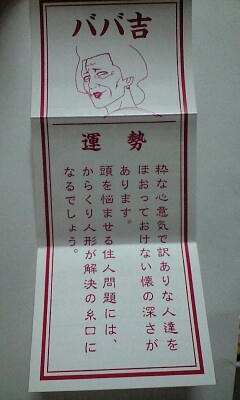 ババ吉
運勢
粋な心意気で訳ありな人達を
ほおっておけない懐の深さが
あります。
頭を悩ませる住人問題には、
からくり人形が解決の糸口に
なるでしょう。